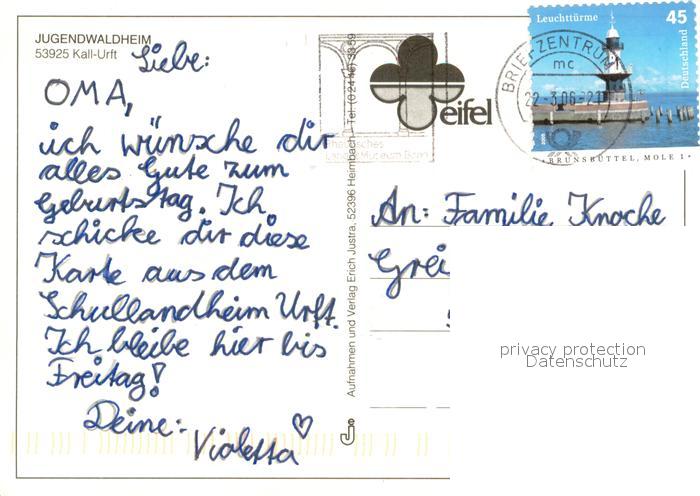 JUGENDWALDHEIM
53925 Kall-Urft
Liebe:
OMA,
ich wünsche dir
alles Gute zum
Geburtstag. Ich
schicke dir diese
Karte aus dem
Schullandheim Urft.
Ich bleibe hier bis
Freitag!
Deine:
Violetta
Aufnahmen und Verlag Erich Justra, 52396 Heimbach
eifel
BRIEFZENTRUM
mc
22-3.06-21
Leuchttürme
45
Deutschland
BRUNSBÜTTEL, MOLE 1
An: Familie Knoche
Grei
privacy protection
Datenschutz